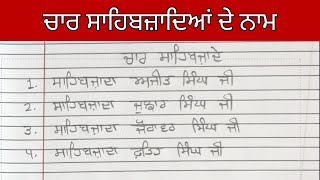 ਚਾਰ ਸਾਹਿਬਜ਼ਾਦਿਆਂ ਦੇ ਨਾਮ
ਚਾਰ ਸਾਹਿਬਜ਼ਾਦੇ
1. ਸਾਹਿਬਜ਼ਾਦਾ ਅਜੀਤ ਸਿੰਘ ਜੀ
2. ਸਾਹਿਬਜ਼ਾਦਾ ਜੁਝਾਰ ਸਿੰਘ ਜੀ
3. ਸਾਹਿਬਜ਼ਾਦਾ ਜ਼ੋਰਾਵਰ ਸਿੰਘ ਜੀ
4. ਸਾਹਿਬਜ਼ਾਦਾ ਫ਼ਤਿਹ ਸਿੰਘ ਜੀ